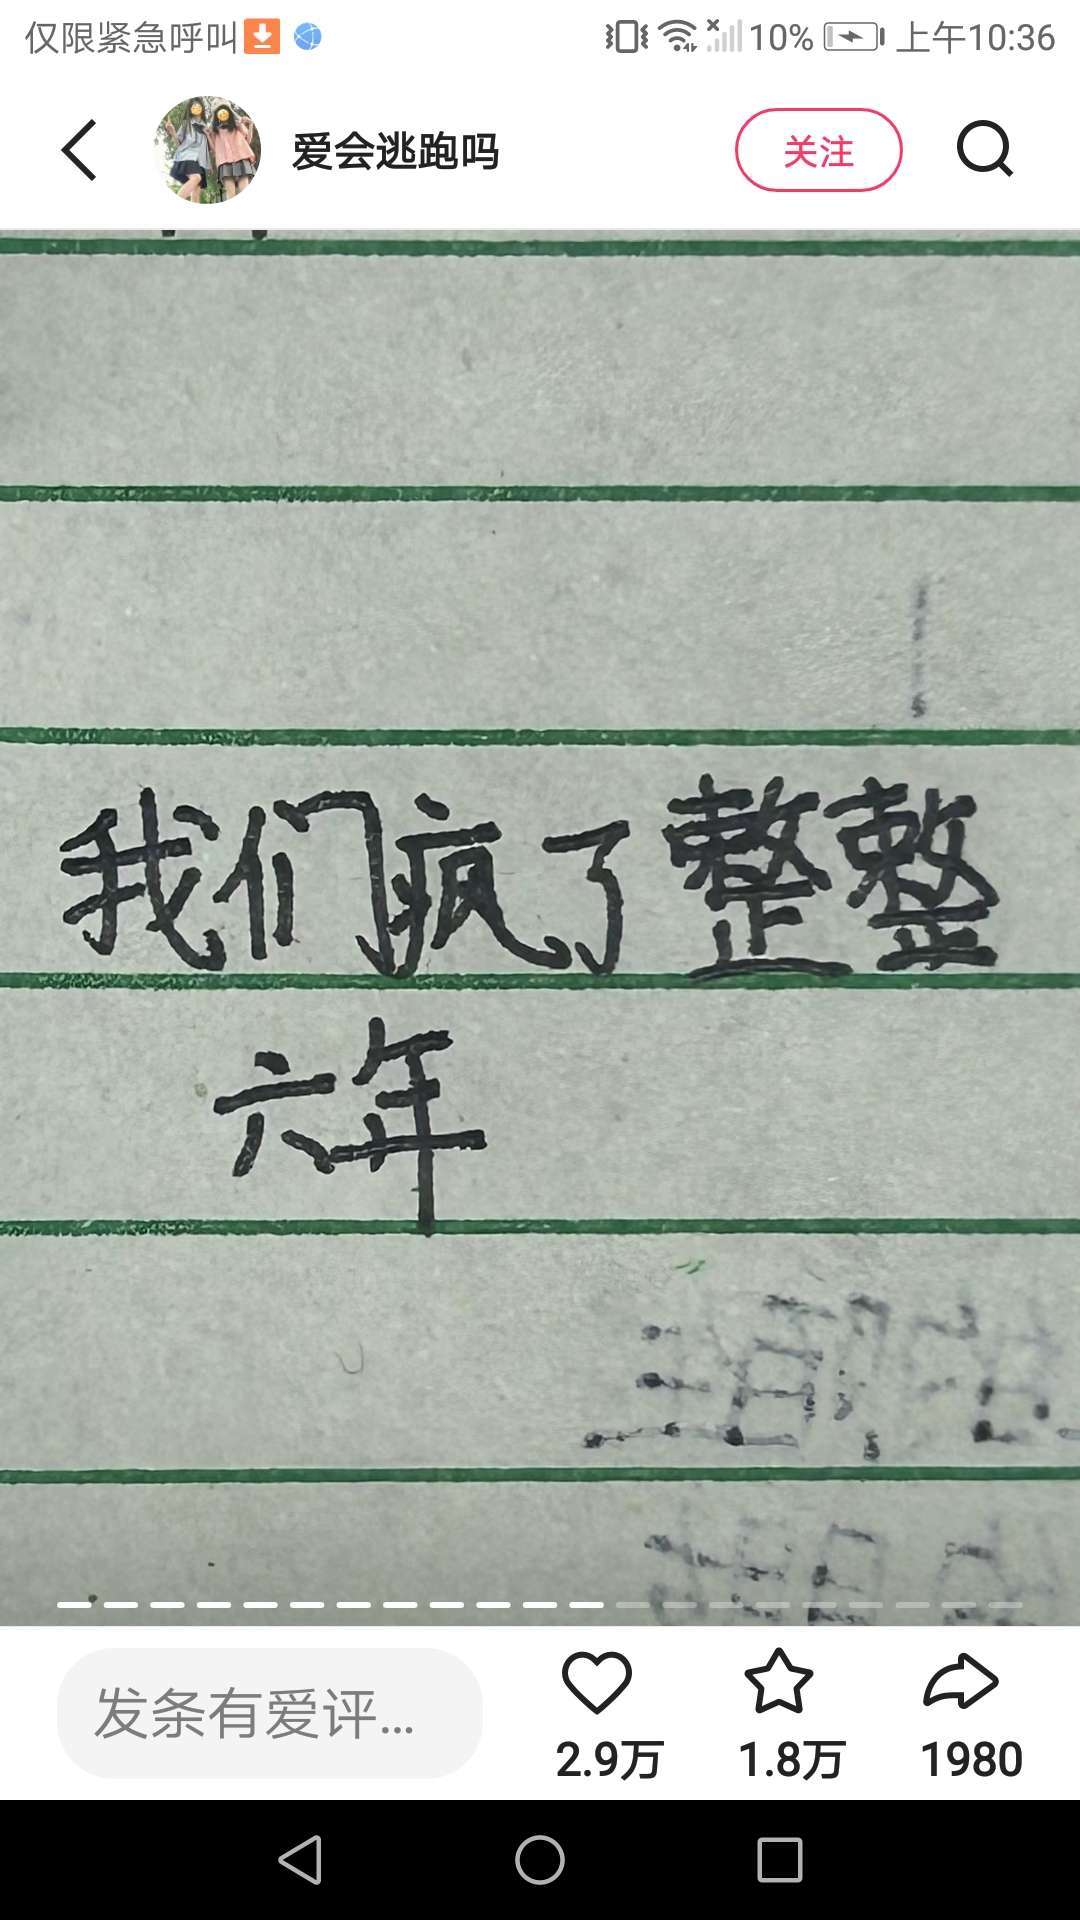 仅限紧急呼叫 10% 上午10:36
爱会逃跑吗 关注
我们疯了整整
六年
发条有爱评...
2.9万 1.8万 1980